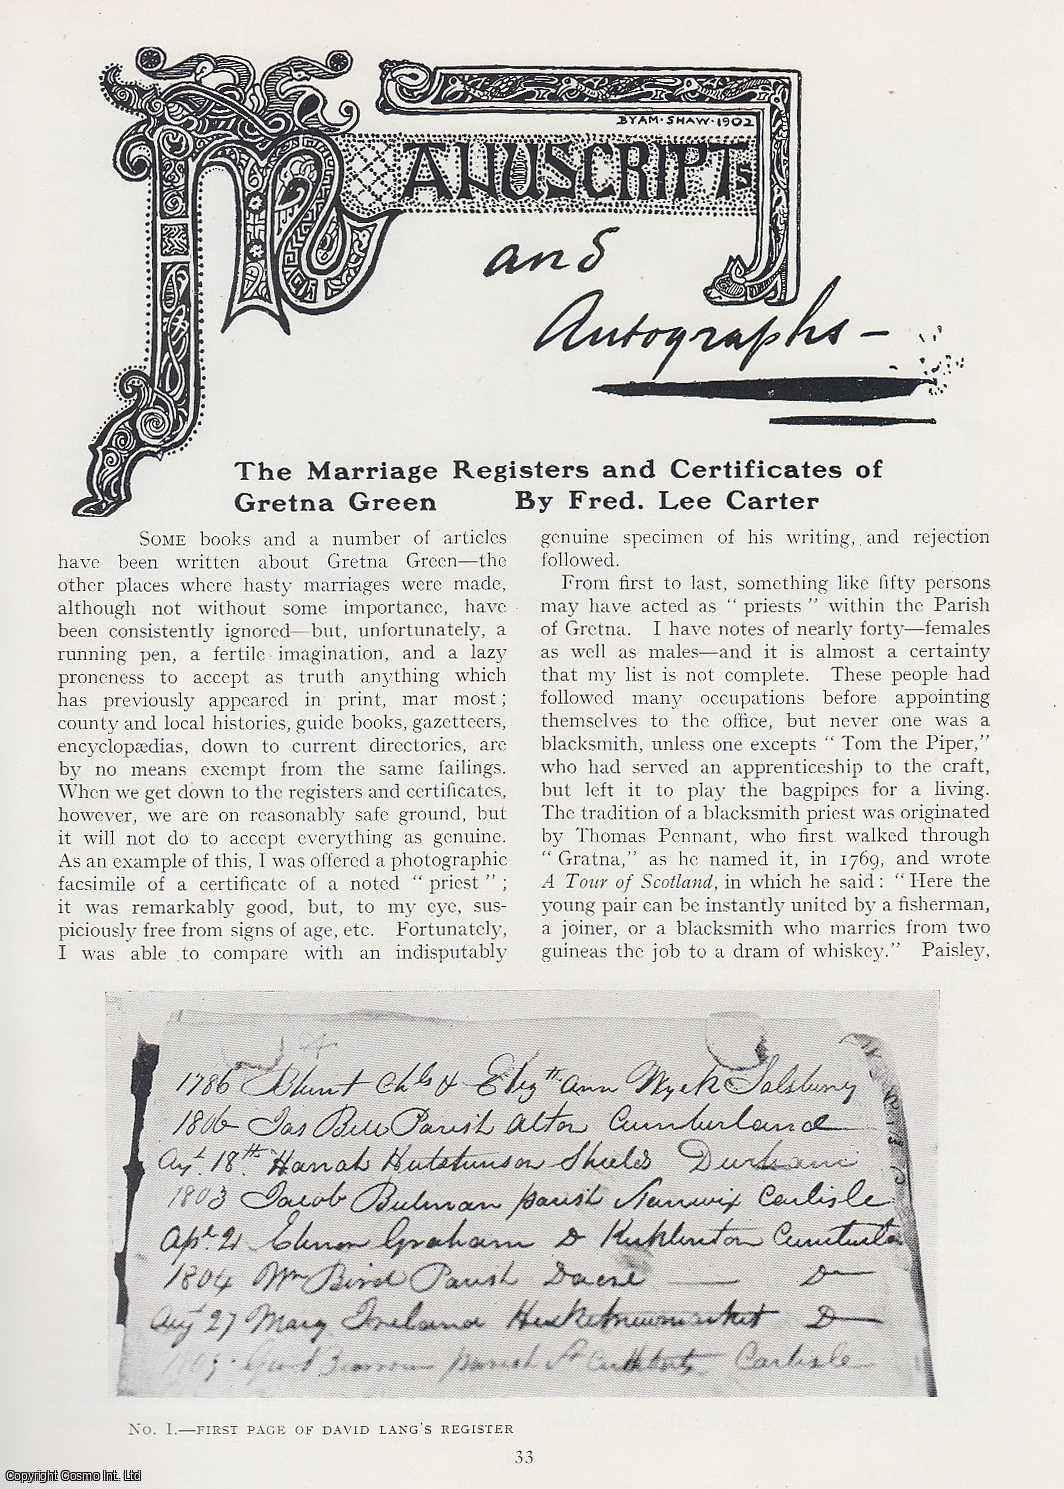 BYAM·SHAW·1902
MANUSCRIPTS
and
Autographs—
The Marriage Registers and Certificates of
Gretna Green By Fred. Lee Carter
SOME books and a number of articles
have been written about Gretna Green—the
other places where hasty marriages were made,
although not without some importance, have
been consistently ignored—but, unfortunately, a
running pen, a fertile imagination, and a lazy
proneness to accept as truth anything which
has previously appeared in print, mar most;
county and local histories, guide books, gazetteers,
encyclopædias, down to current directories, are
by no means exempt from the same failings.
When we get down to the registers and certificates,
however, we are on reasonably safe ground, but
it will not do to accept everything as genuine.
As an example of this, I was offered a photographic
facsimile of a certificate of a noted "priest";
it was remarkably good, but, to my eye, sus-
piciously free from signs of age, etc. Fortunately,
I was able to compare with an indisputably
genuine specimen of his writing, and rejection
followed.
From first to last, something like fifty persons
may have acted as "priests" within the Parish
of Gretna. I have notes of nearly forty—females
as well as males—and it is almost a certainty
that my list is not complete. These people had
followed many occupations before appointing
themselves to the office, but never one was a
blacksmith, unless one excepts "Tom the Piper,"
who had served an apprenticeship to the craft,
but left it to play the bagpipes for a living.
The tradition of a blacksmith priest was originated
by Thomas Pennant, who first walked through
"Gratna," as he named it, in 1769, and wrote
A Tour of Scotland, in which he said: "Here the
young pair can be instantly united by a fisherman,
a joiner, or a blacksmith who marries from two
guineas the job to a dram of whiskey." Paisley,
1786 Blunt Chls & Elizth Ann Myck Salsbury
1806 Jas Bell Parish Alton Cumberland
Agt. 18th Hanah Hutchinson Shields Durham
1803 Jacob Bulman parish Carlisle
Apl. 21 Elenor Graham D Kirklinton
1804 Wm Bird Parish Dacre — Do—
Agt 27 Mary Ireland Hesketnewmarket Do—
parish St Cuthberts Carlisle
No. I.—FIRST PAGE OF DAVID LANG'S REGISTER
33
Copyright Cosmo Int. Ltd